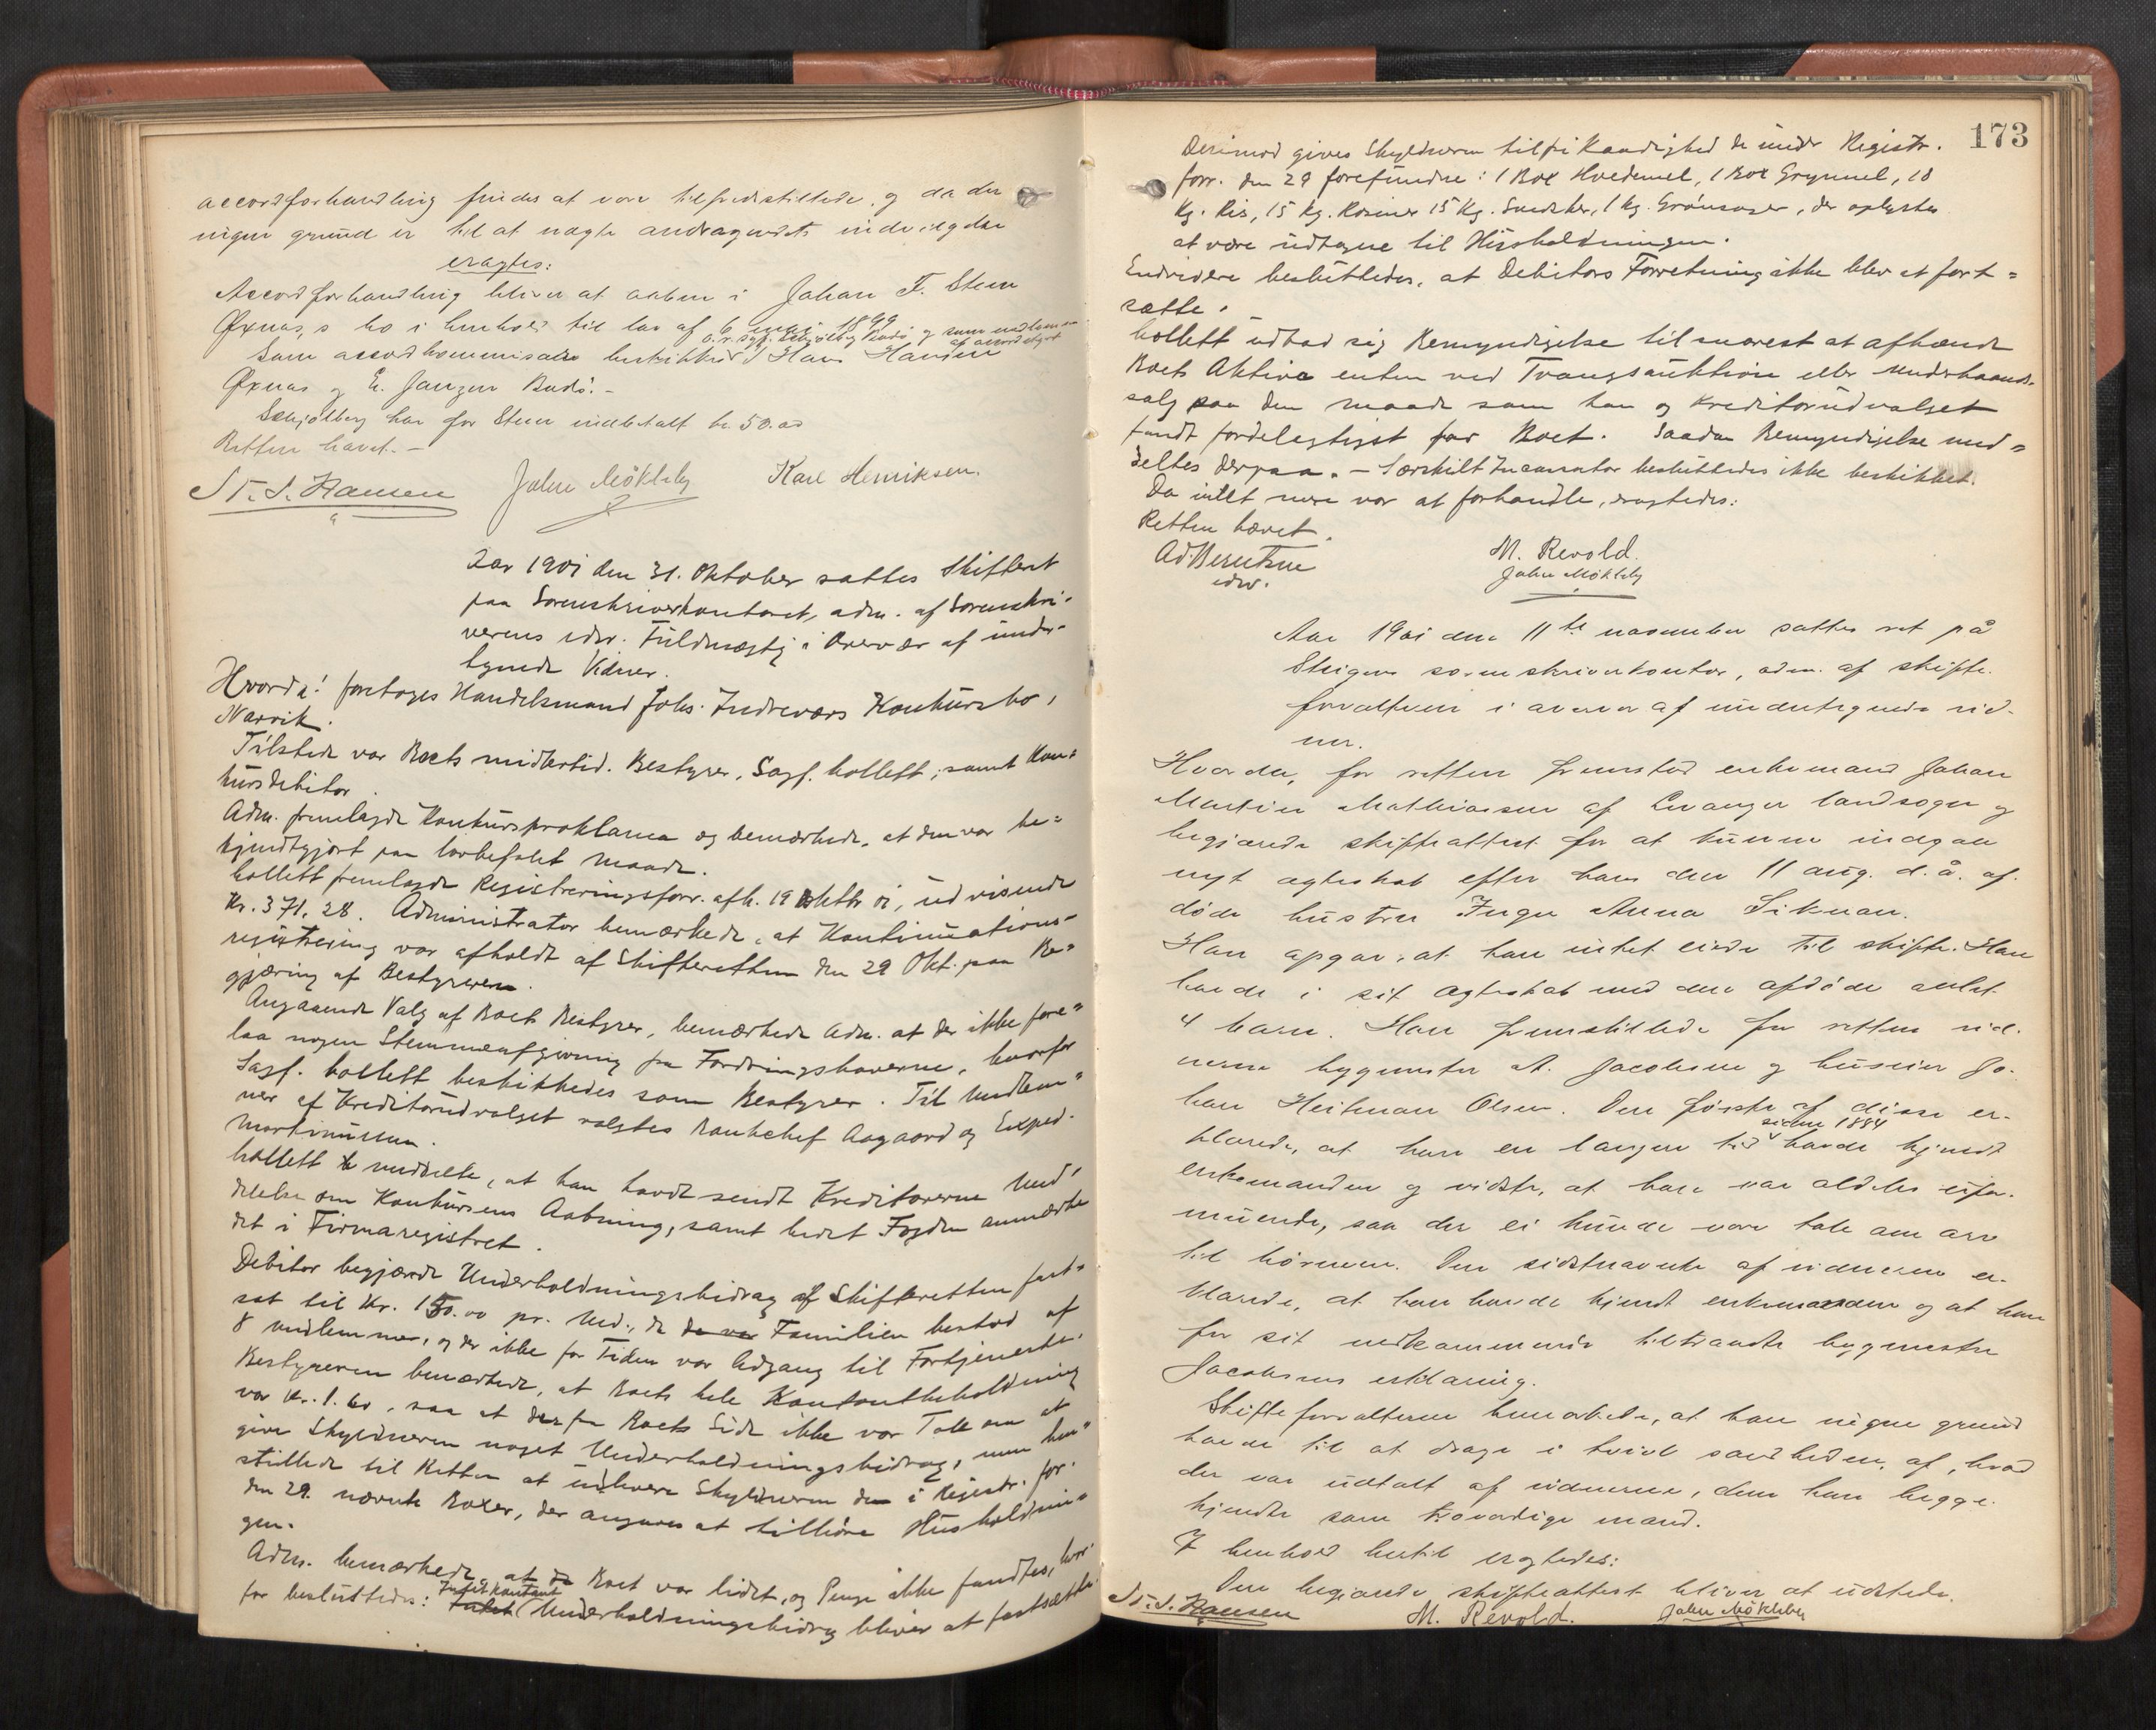 accordforhandling findes at være tilfredsstillede, og da der
ingen grund er til at nægte andragendets indvilgelse
eragtes:
Accordforhandling bliver at aabne i Johan F. Steen
Øxnas,s bo i henhold til lov af 6 mai 1899
Som accordkommisær beskikkes o.r.sgf. Schjølberg Bodø og som medlemmer af accordstyret Hans Hansen
Øxnas og E. Jangen Bodø.-
Schjølberg har for Steen indbetalt kr. 50.00
Retten hævet.-
St. S. Hansen John Mökleby Karl Henriksen.
Aar 1901 den 31. Oktober sattes Skifteret
paa Sorenskriverkontoret, adm. af Sorenskri-
verens edsv. Fuldmægtig i Overvær af under-
tegnede Vidner.
Hvorda: foretoges Handelsmand Johs. Indreværs Konkursbo,
Narvik.
Tilstede var Boets midlertid. Bestyrer, Sagf. Collett, samt Kon=
kursdebitor.
Adm. fremlagde Konkursproklama og bemærkede, at den var be=
kjendtgjort paa lovbefalet Maade.
Collett fremlagde Registreringsforr. afh. 19 Oktbr 01, udvisende
Kr. 371,28. Administrator bemærkede, at Kontinuations-
registrering var afholdt af Skifteretten den 29 Okt. paa Be=
gjæring af Bestyreren.
Angaaende Valg af Boets Bestyrer, bemærkede Adm. at der ikke fore=
laa nogen Stemmeafgivning fra Fordringshaverne, hvorfor
Sagf. Collett beskikkedes som Bestyrer. Til Medlem=
mer af Kreditorudvalget valgtes Bankchef Aagaard og Exped.
Martinussen.
Collett meddelte, at han havde sendt Kreditorerne Med=
delelse om Konkursens Aabning, samt bedet Fogden anmærke
det i Firmaregistret.
Debitor begjærede Underholdningsbidrag af Skifteretten fast=
sat til Kr. 150.00 pr. Md., da de var Familien bestod af
8 medlemmer, og der ikke for Tiden var Adgang til Fortjeneste.
Bestyreren bemærkede, at Boets hele Kontantbeholdning
var Kr. 1.60, saa at der fra Boets Side ikke var Tale om at
give Skyldneren noget Underholdningsbidrag, men hen=
stillede til Retten at udlevere Skyldneren de i Registr. forr.
den 29. nævnte Boxer, der angaves at tilhøre Husholdnin=
gen.
Adm. bemærkede, at da Boet var lidet, og Penge ikke fandtes, hvor=
for besluttedes: Intet Intet kontant Underholdningsbidrag bliver at fastsætte.
173
Derimod gives Skyldneren tilfri Raadighed de under Registr.
forr. den 29 forefundne: 1 Box Hvedemel, 1 Box Grynmel, 10
Kg. Ris, 15 Kg. Rosiner 15 Kg. Svedsker, 1 kg. Grønsager, der oplystes
at være udtagne til Husholdningen.
Endvidere besluttedes, at Debitors Forretning ikke blev at fort=
sætte.
Collett udbad sig Bemyndigelse til snarest at afhænde
Boets Aktiva enten ved Tvangsauktion eller Underhaands-
salg paa den Maade som han og Kreditorudvalget
fandt fordelagtigst for Boet. Saadan Bemyndigelse med=
deltes derpaa. - Særskilt Incassator besluttedes ikke beskikket.
Da intet mere var at forhandle, eragtedes:
Retten hævet.
Ad. Berntsen
edsv.
M. Revold.
John Mökleby
Aar 1901 den 11te november sattes ret på
Steigens sorenskriverkontor, adm. af skifte-
forvalteren i overvær af undertegnede vid-
ner.
Hvorda, for retten fremstod enkemand Johan
Martin Mathiassen af Evanger landsogn og
begjærede skifteattest for at kunne indgaa
nyt ægteskab efter hans den 11 aug. d.å. af-
døde hustru Inger Anna Siknan.
Han opgav, at han intet eiede til skifte. Han
havde i sit ægteskab med den afdøde avlet
4 barn. Han fremstillede for retten vid-
nerne bygmester A. Jacobsen og huseier Jo-
han Heitman Olsen. Den første af disse er-
klærede, at han en længere tid siden 1884 havde kjendt
enkemanden og vidste, at han var aldeles ufor-
muende, saa der ei kunde være tale om arv
til börnene. Den sidstnævnte af vidnerne er-
klærede, at han havde kjendt enkemanden og at han
for sit vedkommende tiltraadte bygmester
Jacobsens erklæring.
Skifteforvalteren bemærkede, at han ingen grund
havde til at drage i tvivl sandheden af, hvad
der var udtalt af vidnerne, dem han begge
kjendte som troværdige mænd.
I henhold hertil eragtedes:
Den begjærede skifteattest bliver at udstede.
St. S. Hansen M. Revold. John Mökleby